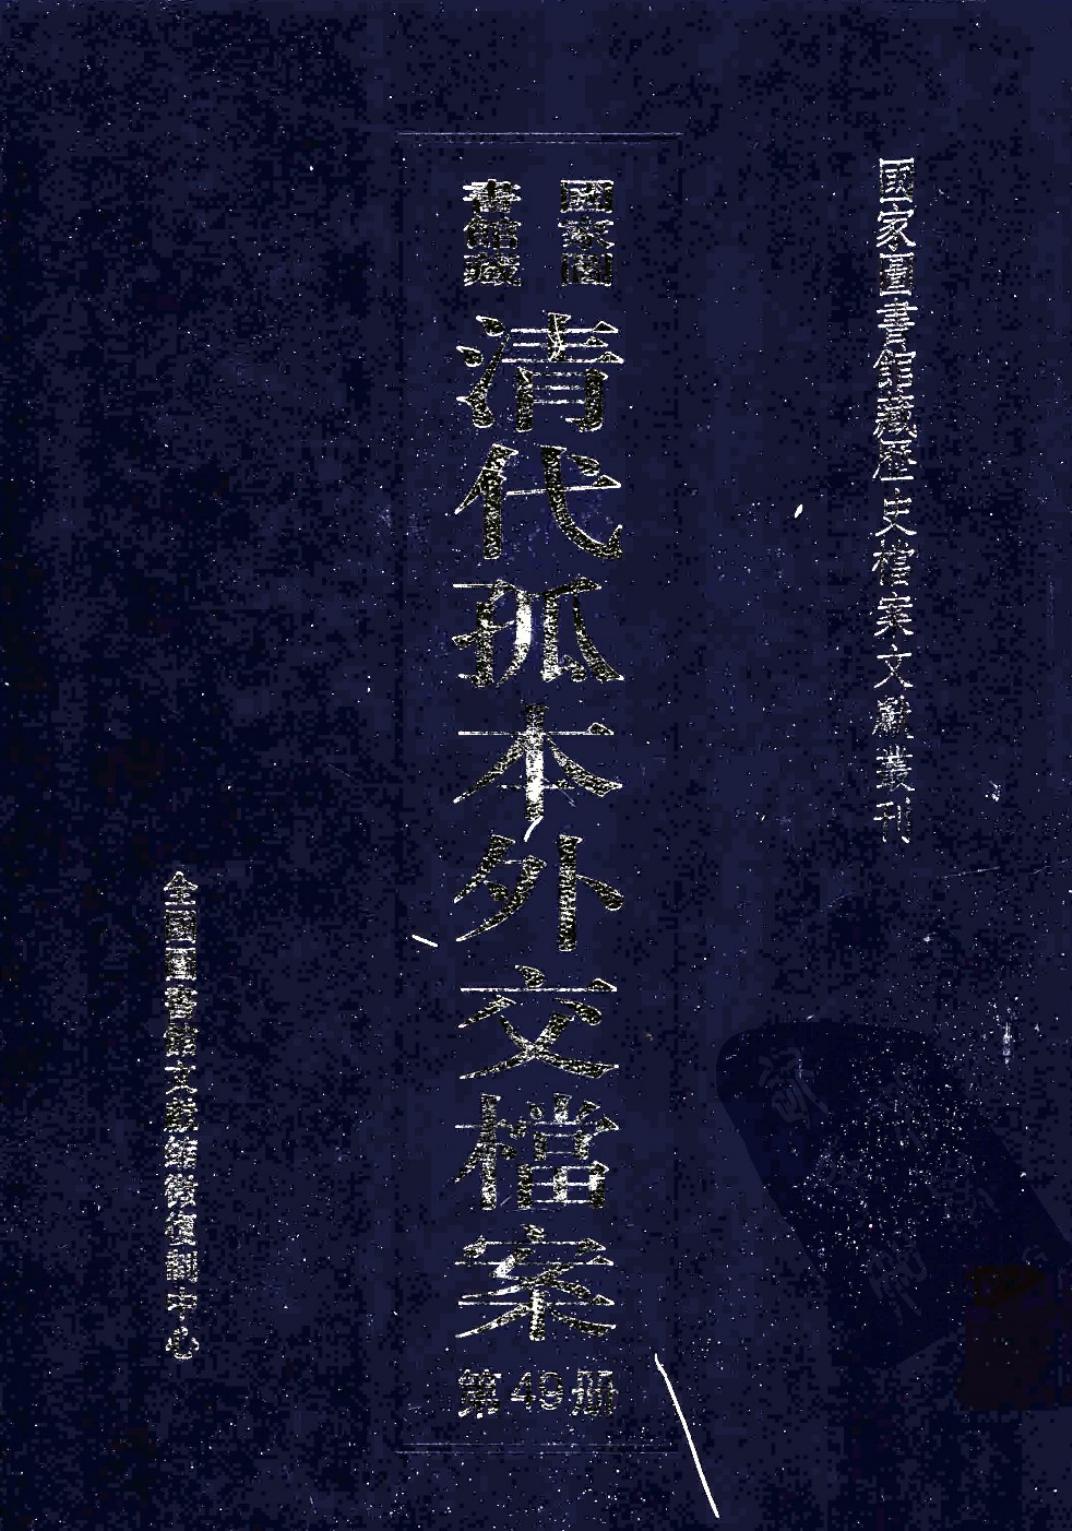 國家圖書館藏歷史檔案文獻叢刊
國家圖
書館藏
清代孤本外交檔案
第49册
全國圖書館文獻縮微復制中心